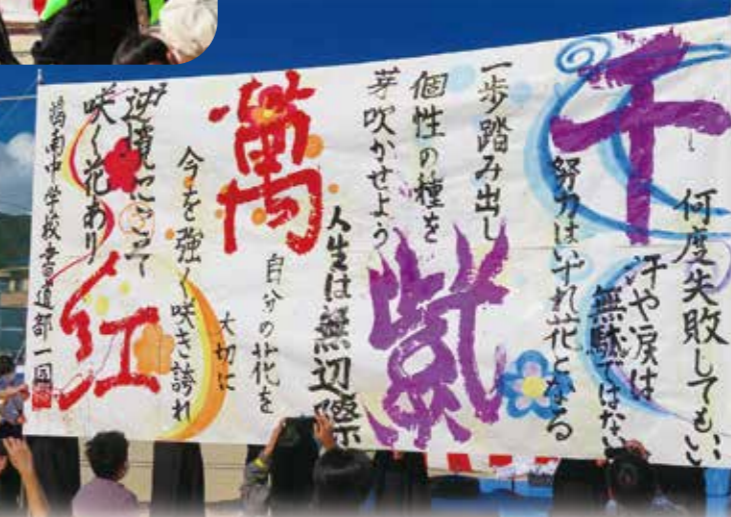 千紫
萬紅
何度失敗してもいい
汗や涙は
無駄ではない
努力はいずれ花となる
一歩踏み出し
個性の種を
芽吹かせよう
人生は無辺際
自分の花を
大切に
今を強く咲き誇れ
逆境にこそ
咲く花あり
南中学校書道部一同